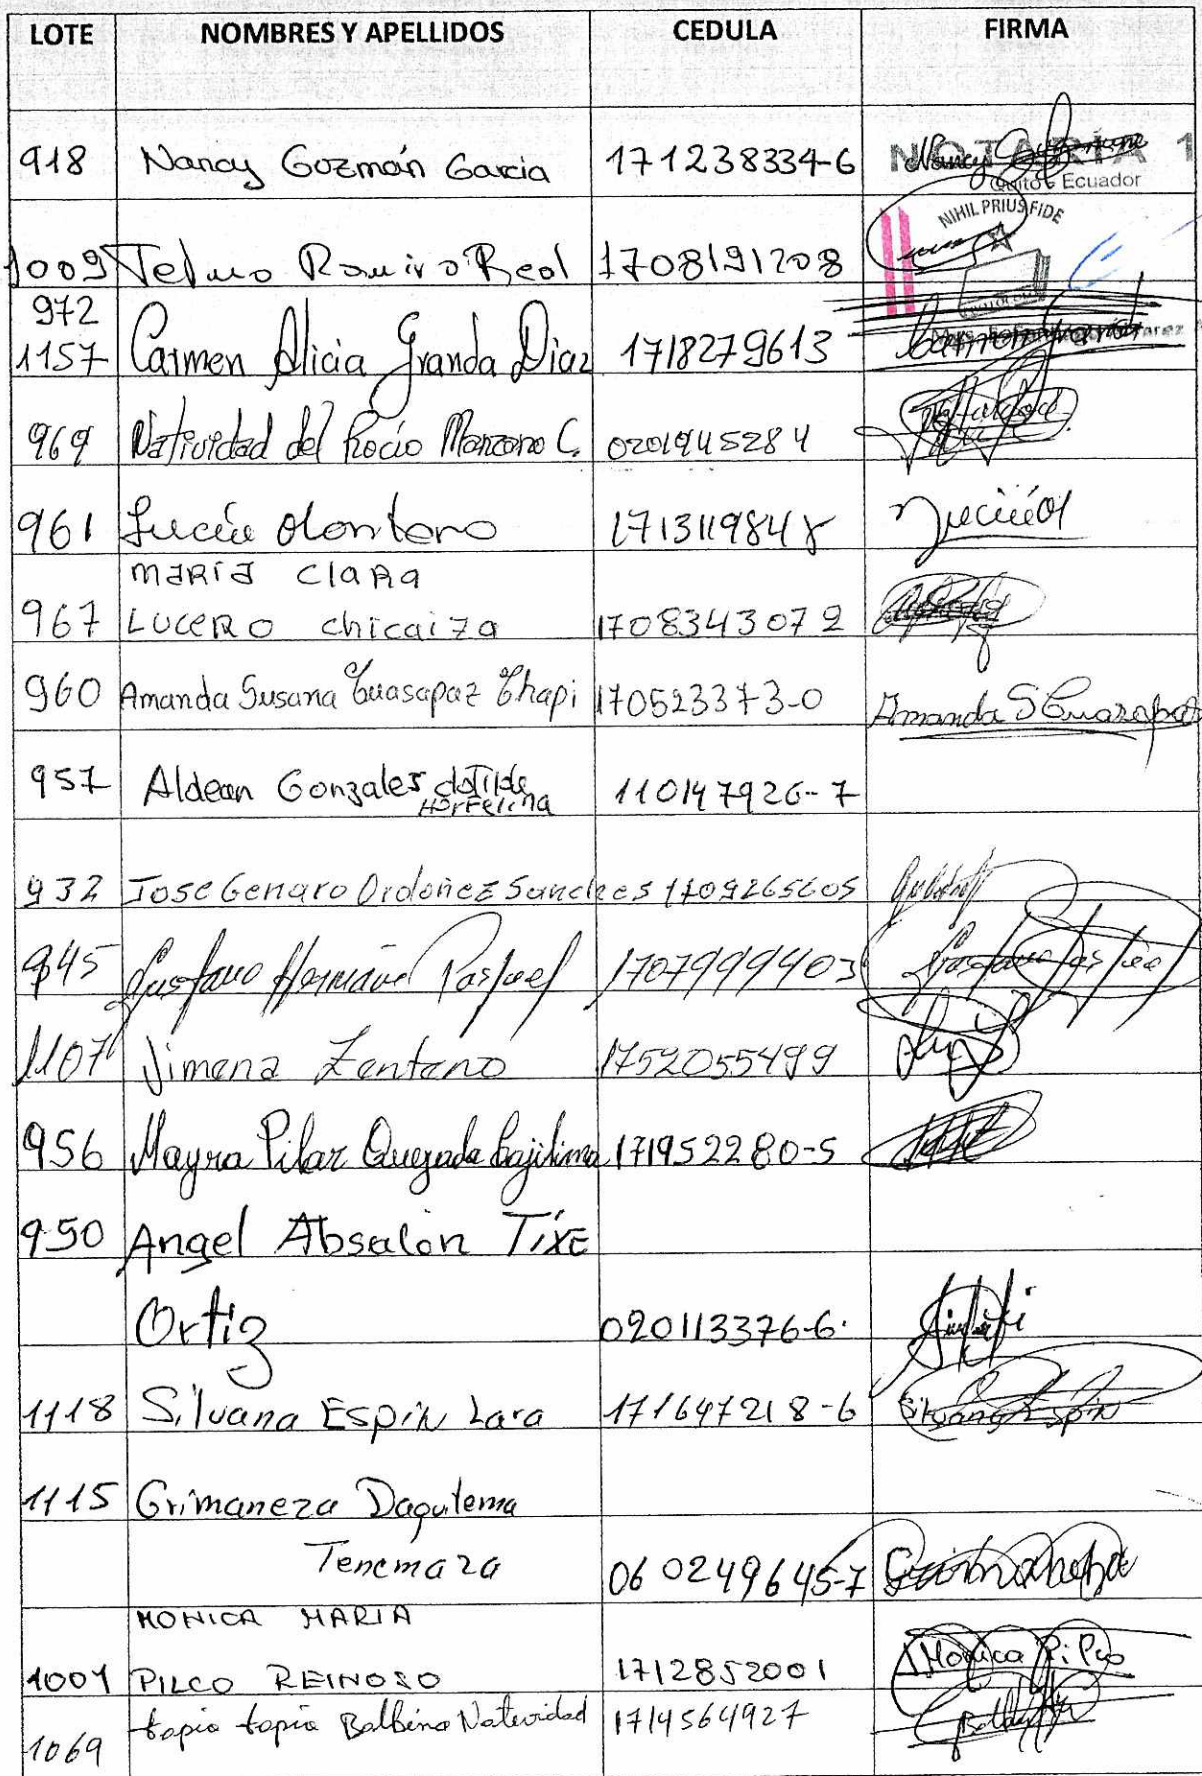 LOTE NOMBRES Y APELLIDOS CEDULA FIRMA
918 Nancy Gozmán Garcia 171238334-6 Nancy
NOTARÍA 1
Quito - Ecuador
NIHIL PRIUS FIDE
1009 Telmo Ramiro Real 1708191208
972
1157 Carmen Alicia Granda Diaz 1718279613
969 Natividad del Rocío Manzano C. 0201945284
961 Lucía 171311984
MARIA CLARA
967 LUCERO chicaiza 1708343072
960 Amanda Susana Cuasapaz Chapi 170523373-0 Amanda S Cuasapaz
957 Aldean Gonzales clotilde 110147926-7
Horfelina
932 Jose Genaro Ordoñez Sanches 1709265605
945 Gustavo Hernán Paspuel 1707999403
1107 Jimena Zenteno 1752055499
956 Mayra Pilar Quezada Cajilima 171952280-5
950 Angel Absalon TIXE
Ortiz 020113376-6.
1118 Silvana Espin Lara 171647218-6 Silvana Espin
1115 Grimaneza Daquilema
Tenemaza 060249645-7
MONICA MARIA
1001 PILCO REINOSO 1712852001 Monica Pilco
1069 tapia tapia Balbina Natividad 1714564927